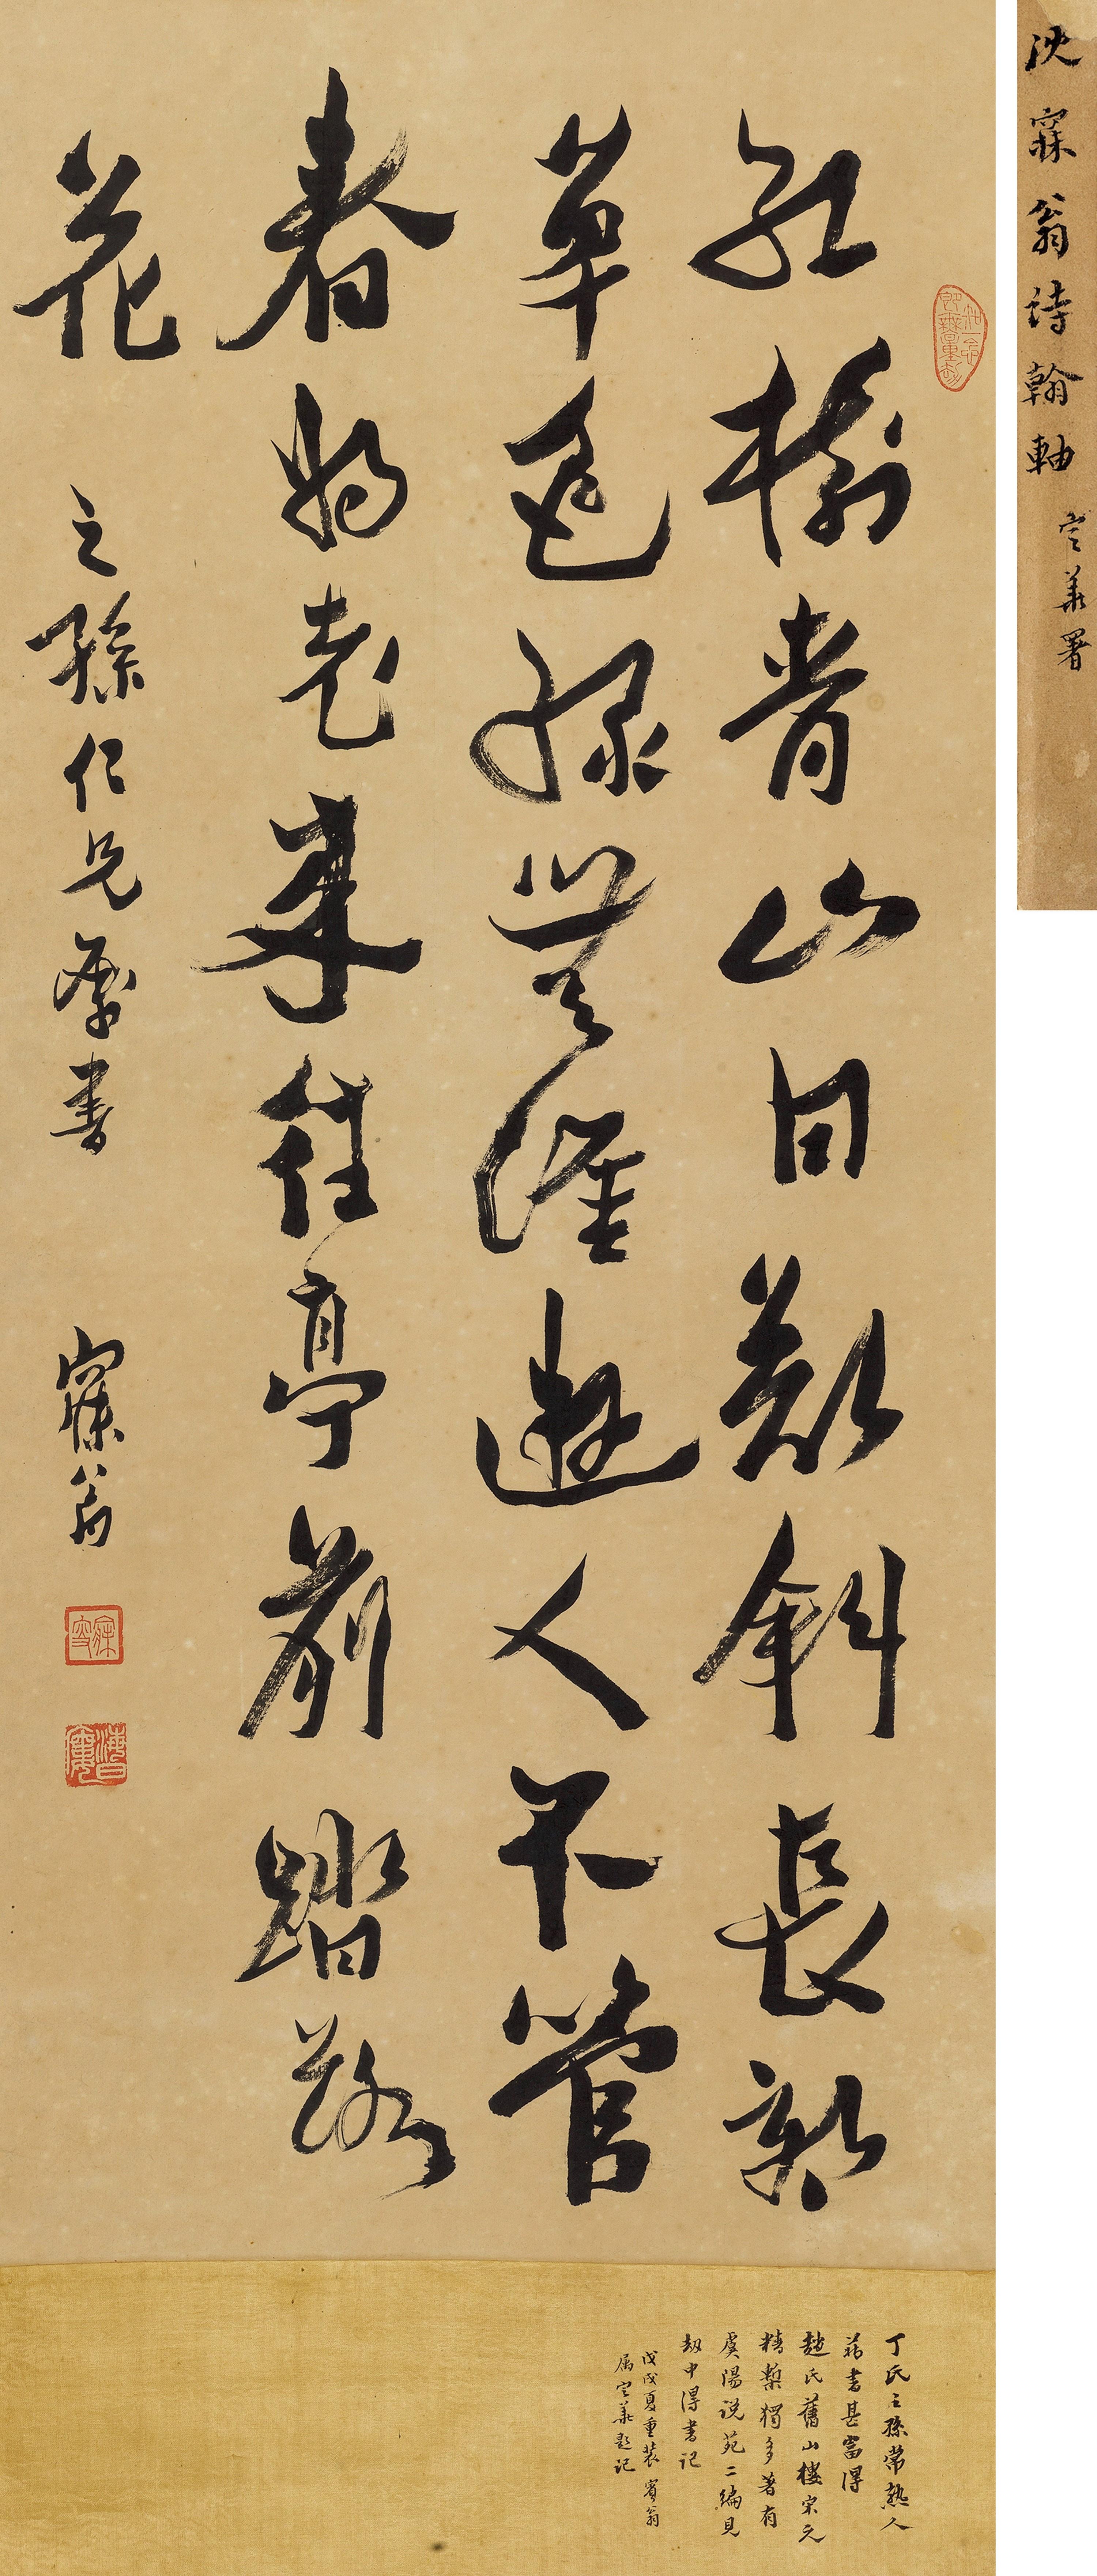 沈寐翁詩翰軸
定華署
知一念即無量劫
紅樹青山日欲斜長郊
草色綠無涯遊人不管
春將老來往亭前踏落
花
之孫仁兄屬書
寐翁
寐叟
海日廔
丁氏之孫常熟人
藏書甚富得
趙氏舊山樓宋元
精槧獨多著有
虞陽說苑二編見
劫中得書記
戊戌夏重裝 賓翁
屬定華題記